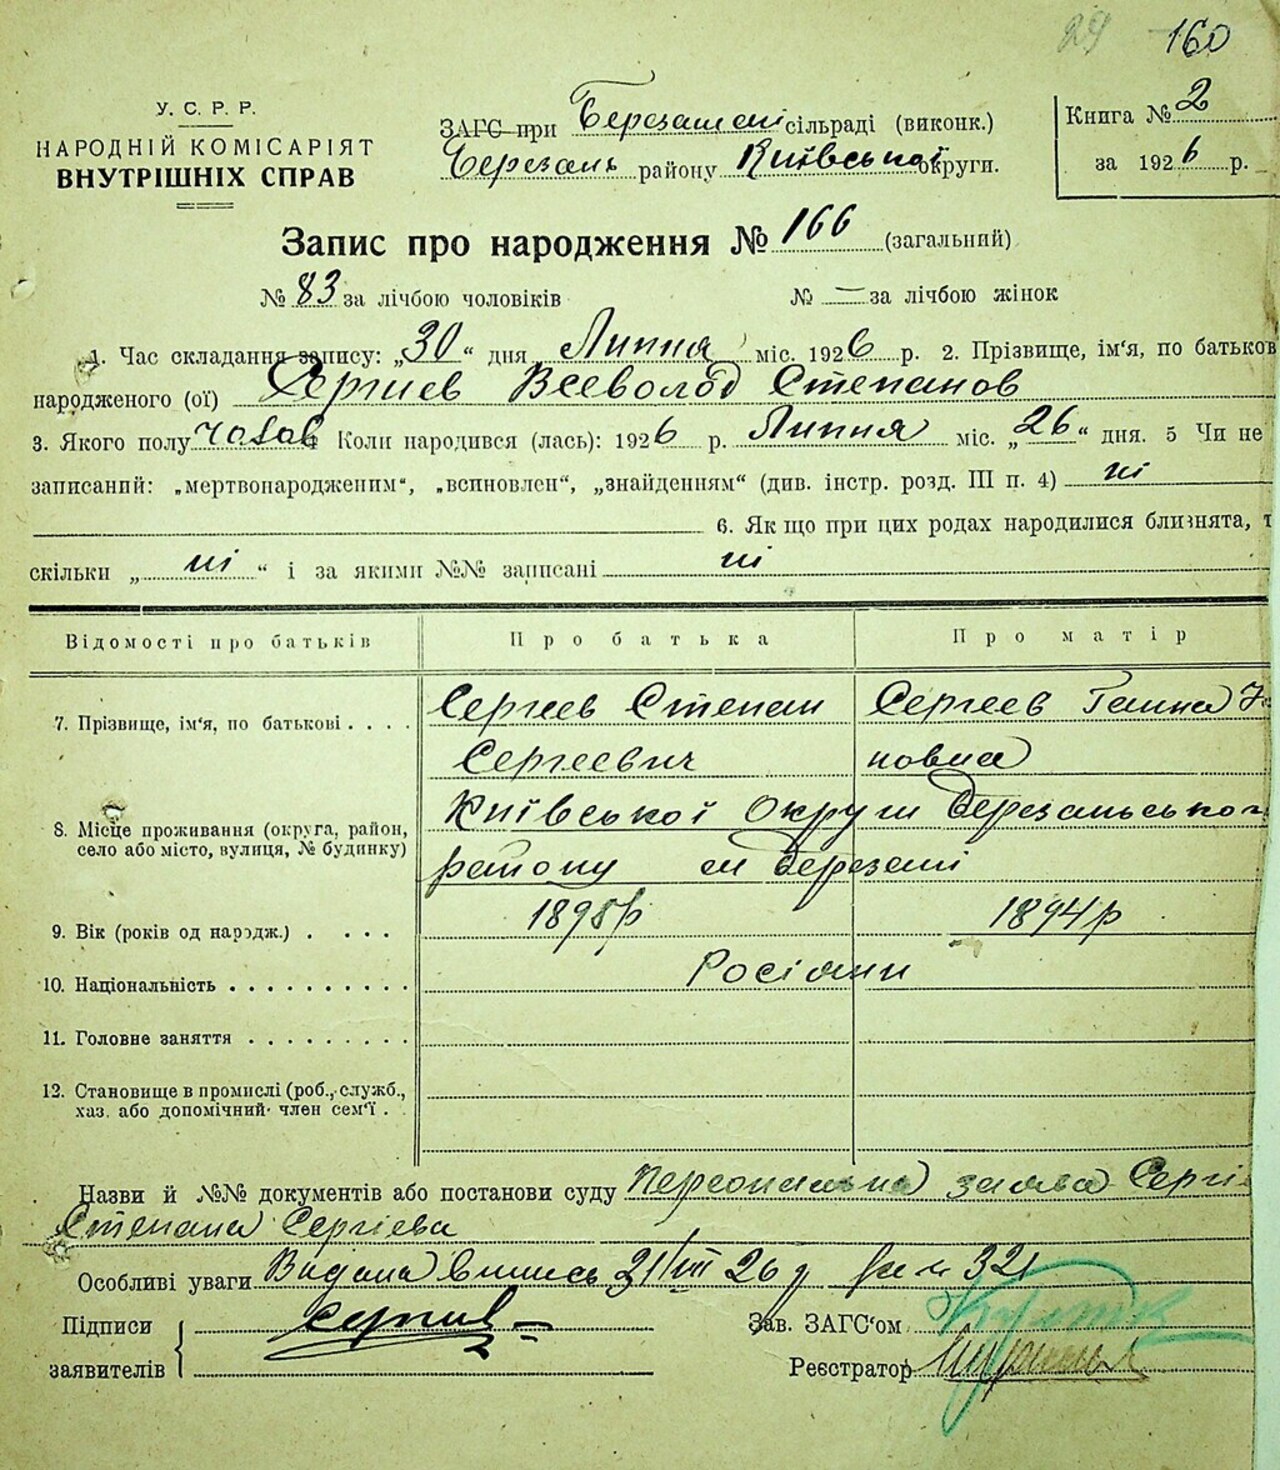 29 160
У. С. Р. Р.
НАРОДНІЙ КОМІСАРІЯТ
ВНУТРІШНІХ СПРАВ
ЗАГС при Березанскі сільраді (виконк.)
Березань району Київської округи.
Книга № 2
за 1926 р.
Запис про народження № 166 (загальний)
№ 83 за лічбою чоловіків № — за лічбою жінок
1. Час складання запису: „30“ дня Липня міс. 1926 р. 2. Прізвище, ім‘я, по батьков
народженого (ої) Сергиев Всеволод Степанов
3. Якого полу чолов 4 Коли народився (лась): 1926 р. Липня міс. „26“ дня. 5 Чи не
записаний: „мертвонародженим“, „всиновлен“, „знайденням“ (див. інстр. розд. III п. 4) ні
6. Як що при цих родах народилися близнята, т
скільки „ні“ і за якими №№ записані ні
Відомості про батьків Про батька Про матір
7. Прізвище, ім‘я, по батькові . . . . Сергеев Степан Сергеев Ганна
Сергеевич новна
8. Місце проживання (округа, район, село або місто, вулиця, № будинку) Київської Округи Березанського
району м Березані
9. Вік (років од народж.) . . . . 1895р 1894р
10. Національність . . . . . . . . . . Росіяни
11. Головне заняття . . . . . . . . .
12. Становище в промислі (роб., служб.,
хаз. або допомічний член сем‘ї . .
Назви й №№ документів або постанови суду Персональна заява Сергі
Степана Сергієва
Особливі уваги Видана Випись 21/VIII 26 р за № 321
Підписи
заявителів Сергиев
Зав. ЗАГС‘ом
Реєстратор